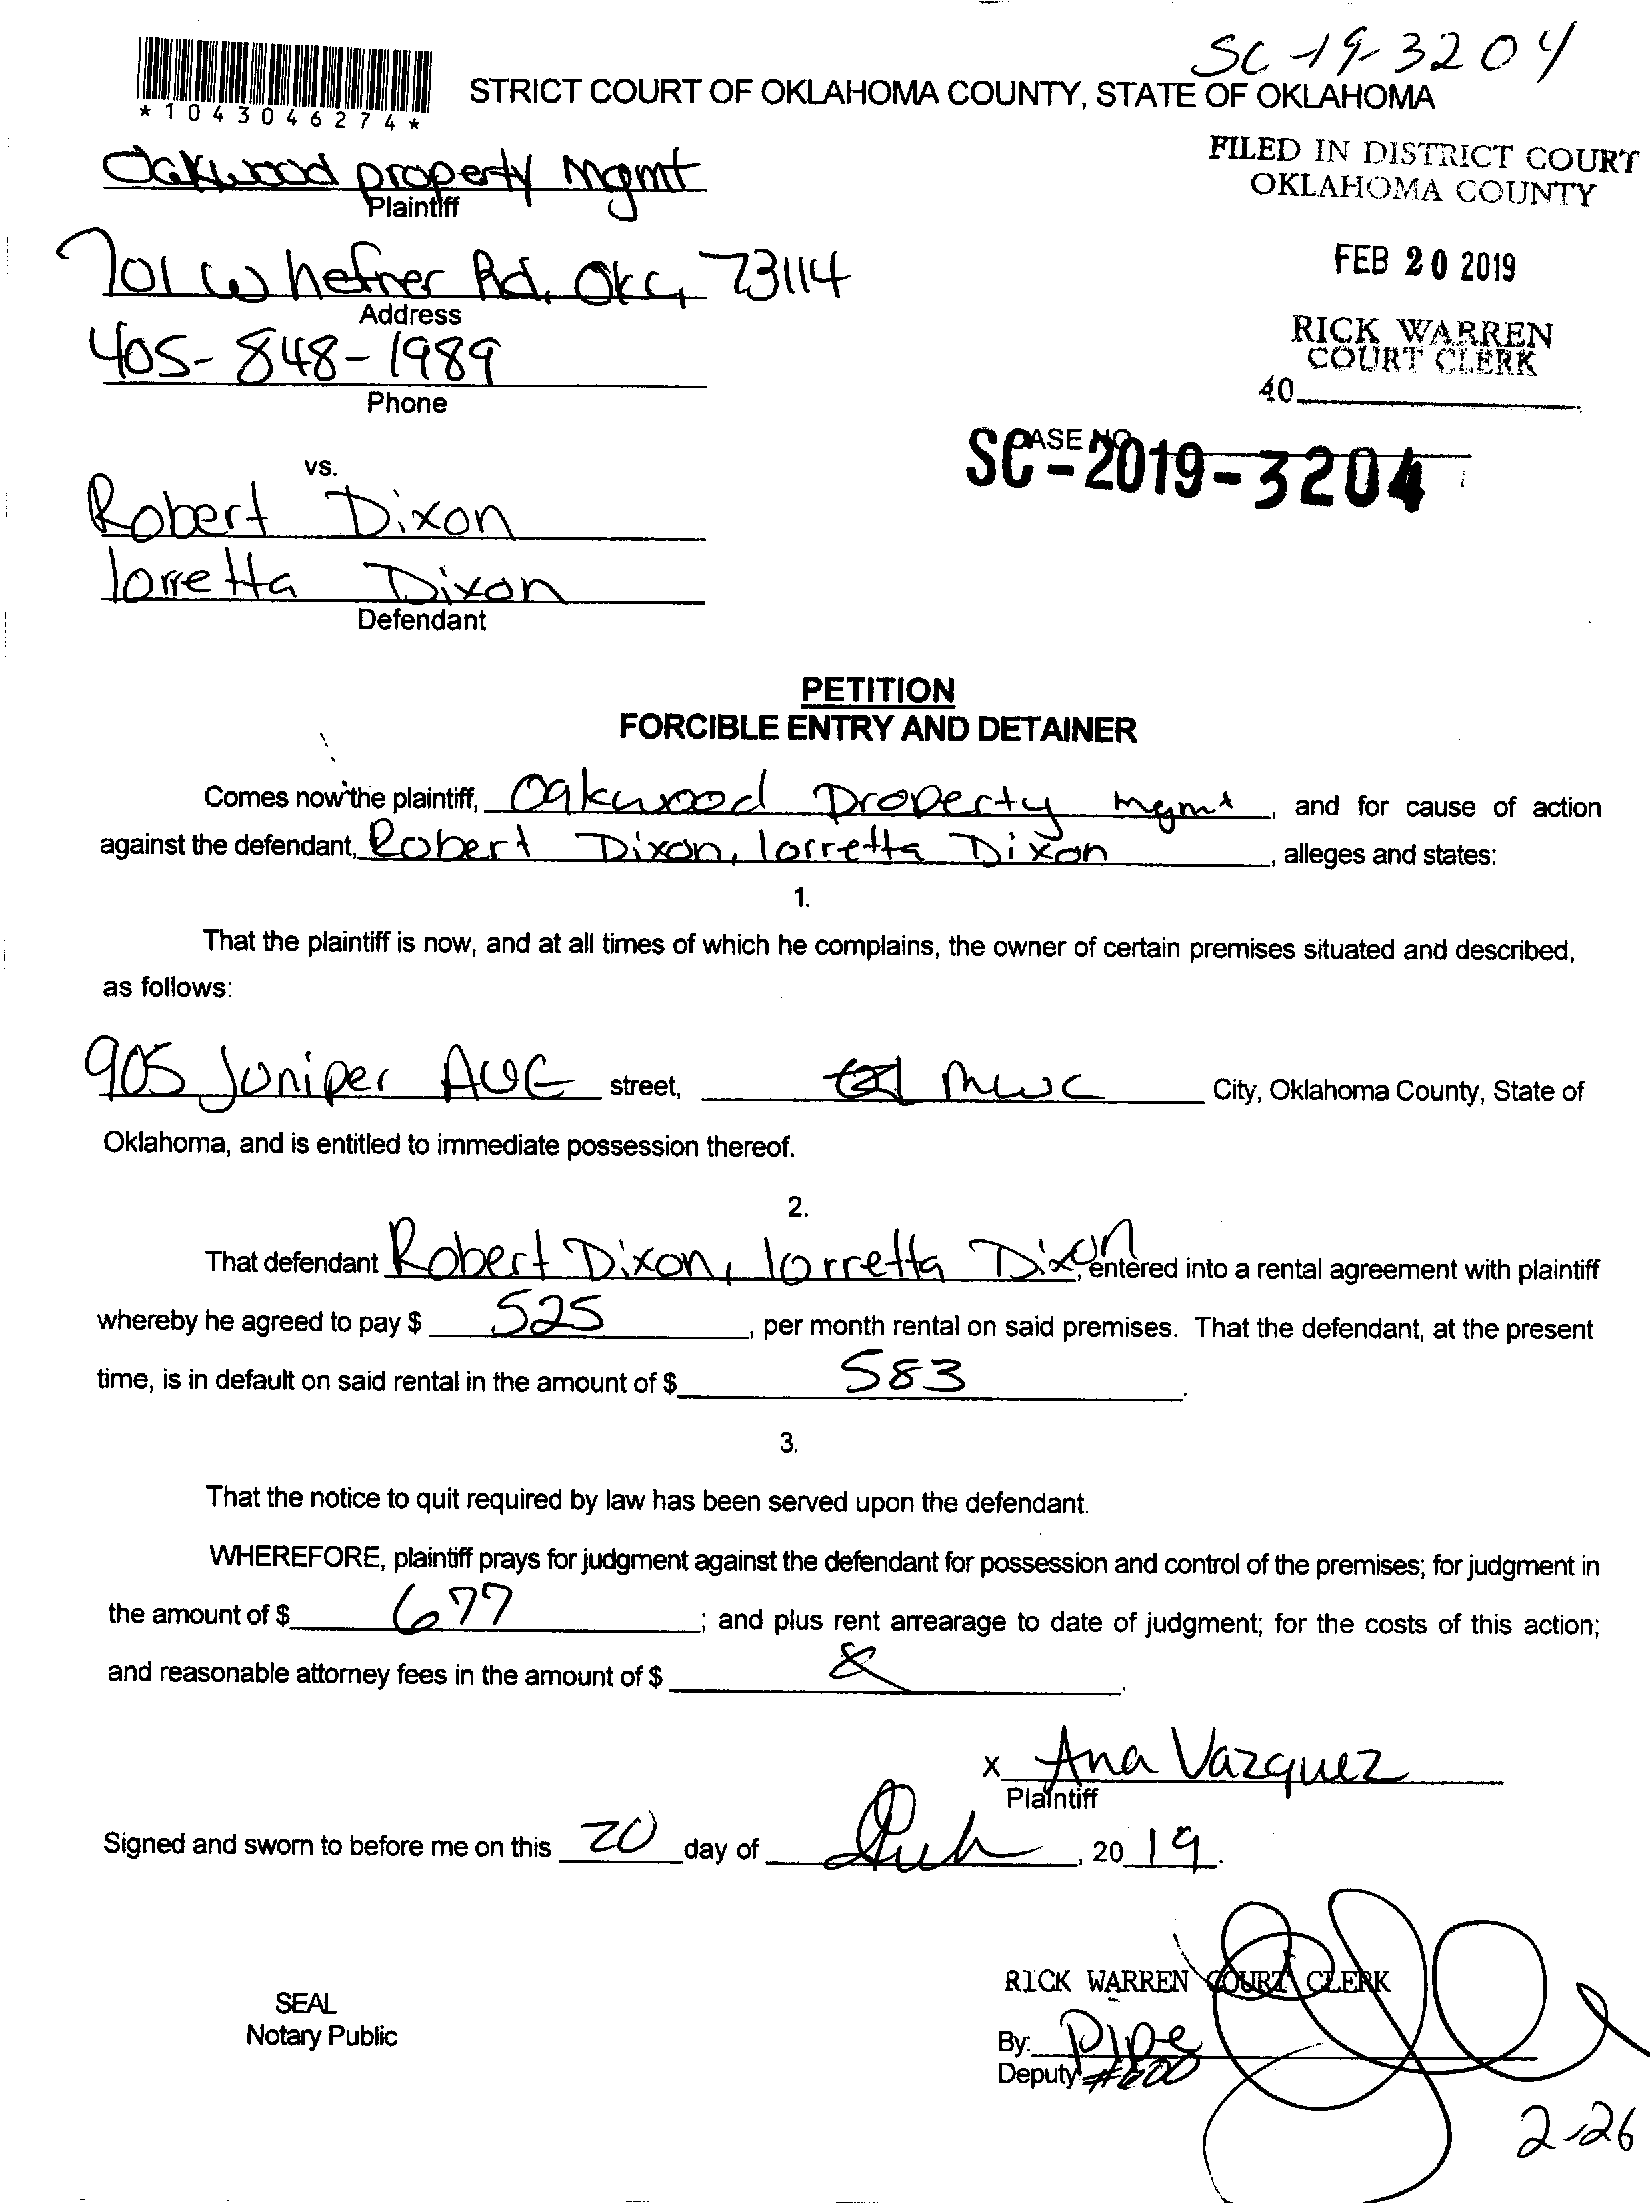 SC-19-3204
*1043046274*
STRICT COURT OF OKLAHOMA COUNTY, STATE OF OKLAHOMA
FILED IN DISTRICT COURT
OKLAHOMA COUNTY
Oakwood property Mgmt
Plaintiff
FEB 20 2019
701 W hefner Rd, OKC, 73114
Address
RICK WARREN
COURT CLERK
405-848-1989
Phone
40
CASE NO.
SC-2019-3204
vs.
Robert Dixon
lorretta Dixon
Defendant
PETITION
FORCIBLE ENTRY AND DETAINER
Comes now the plaintiff, Oakwood Property Mgmt, and for cause of action
against the defendant, Robert Dixon, lorretta Dixon, alleges and states:
1.
That the plaintiff is now, and at all times of which he complains, the owner of certain premises situated and described,
as follows:
905 Juniper AVE street, MWC City, Oklahoma County, State of
Oklahoma, and is entitled to immediate possession thereof.
2.
That defendant Robert Dixon, lorretta Dixon, entered into a rental agreement with plaintiff
whereby he agreed to pay $ 525, per month rental on said premises. That the defendant, at the present
time, is in default on said rental in the amount of $ 583.
3.
That the notice to quit required by law has been served upon the defendant.
WHEREFORE, plaintiff prays for judgment against the defendant for possession and control of the premises; for judgment in
the amount of $ 677; and plus rent arrearage to date of judgment; for the costs of this action;
and reasonable attorney fees in the amount of $.
x Ana Vazquez
Plaintiff
Signed and sworn to before me on this 20 day of, 2019.
RICK WARREN COURT CLERK
SEAL
Notary Public
By:
Deputy #600
2-26